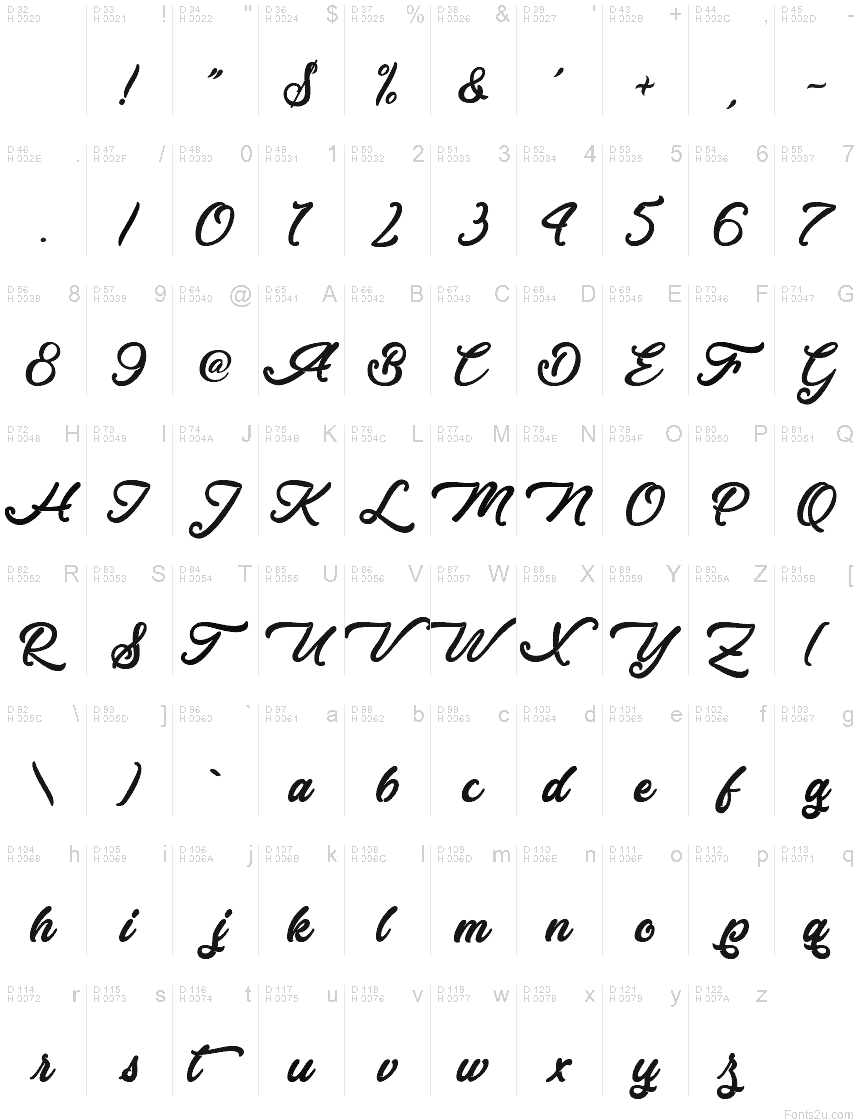 D 32 H 0020 D 33 H 0021 ! D 34 H 0022 " D 36 H 0024 $ D 37 H 0025 % D 38 H 0026 & D 39 H 0027 ' D 43 H 002B + D 44 H 002C , D 45 H 002D -
! " $ % & ' + , -
D 46 H 002E . D 47 H 002F / D 48 H 0030 0 D 49 H 0031 1 D 50 H 0032 2 D 51 H 0033 3 D 52 H 0034 4 D 53 H 0035 5 D 54 H 0036 6 D 55 H 0037 7
. / 0 1 2 3 4 5 6 7
D 56 H 0038 8 D 57 H 0039 9 D 64 H 0040 @ D 65 H 0041 A D 66 H 0042 B D 67 H 0043 C D 68 H 0044 D D 69 H 0045 E D 70 H 0046 F D 71 H 0047 G
8 9 @ A B C D E F G
D 72 H 0048 H D 73 H 0049 I D 74 H 004A J D 75 H 004B K D 76 H 004C L D 77 H 004D M D 78 H 004E N D 79 H 004F O D 80 H 0050 P D 81 H 0051 Q
H I J K L M N O P Q
D 82 H 0052 R D 83 H 0053 S D 84 H 0054 T D 85 H 0055 U D 86 H 0056 V D 87 H 0057 W D 88 H 0058 X D 89 H 0059 Y D 90 H 005A Z D 91 H 005B [
R S T U V W X Y Z (
D 92 H 005C \ D 93 H 005D ] D 96 H 0060 ` D 97 H 0061 a D 98 H 0062 b D 99 H 0063 c D 100 H 0064 d D 101 H 0065 e D 102 H 0066 f D 103 H 0067 g
\ ) ` a b c d e f g
D 104 H 0068 h D 105 H 0069 i D 106 H 006A j D 107 H 006B k D 108 H 006C l D 109 H 006D m D 110 H 006E n D 111 H 006F o D 112 H 0070 p D 113 H 0071 q
h i j k l m n o p q
D 114 H 0072 r D 115 H 0073 s D 116 H 0074 t D 117 H 0075 u D 118 H 0076 v D 119 H 0077 w D 120 H 0078 x D 121 H 0079 y D 122 H 007A z
r s t u v w x y z
Fonts2u.com